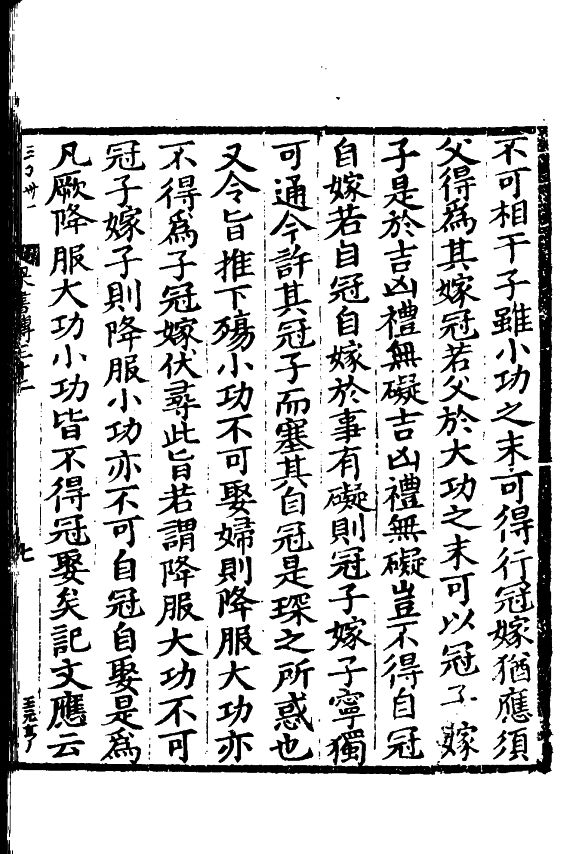 不可相干子雖小功之末可得行冠嫁猶應須
父得爲其嫁冠若父於大功之末可以冠子嫁
子是於吉凶禮無礙吉凶禮無礙豈不得自冠
自嫁若自冠自嫁於事有礙則冠子嫁子寧獨
可通今許其冠子而塞其自冠是琛之所惑也
又令旨推下殤小功不可娶婦則降服大功亦
不得爲子冠嫁伏尋此旨若謂降服大功不可
冠子嫁子則降服小功亦不可自冠自娶是爲
凡厥降服大功小功皆不得冠娶矣記文應云
七